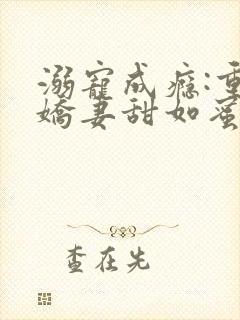 溺寵成癮:重
嬌妻甜如蜜
查在先